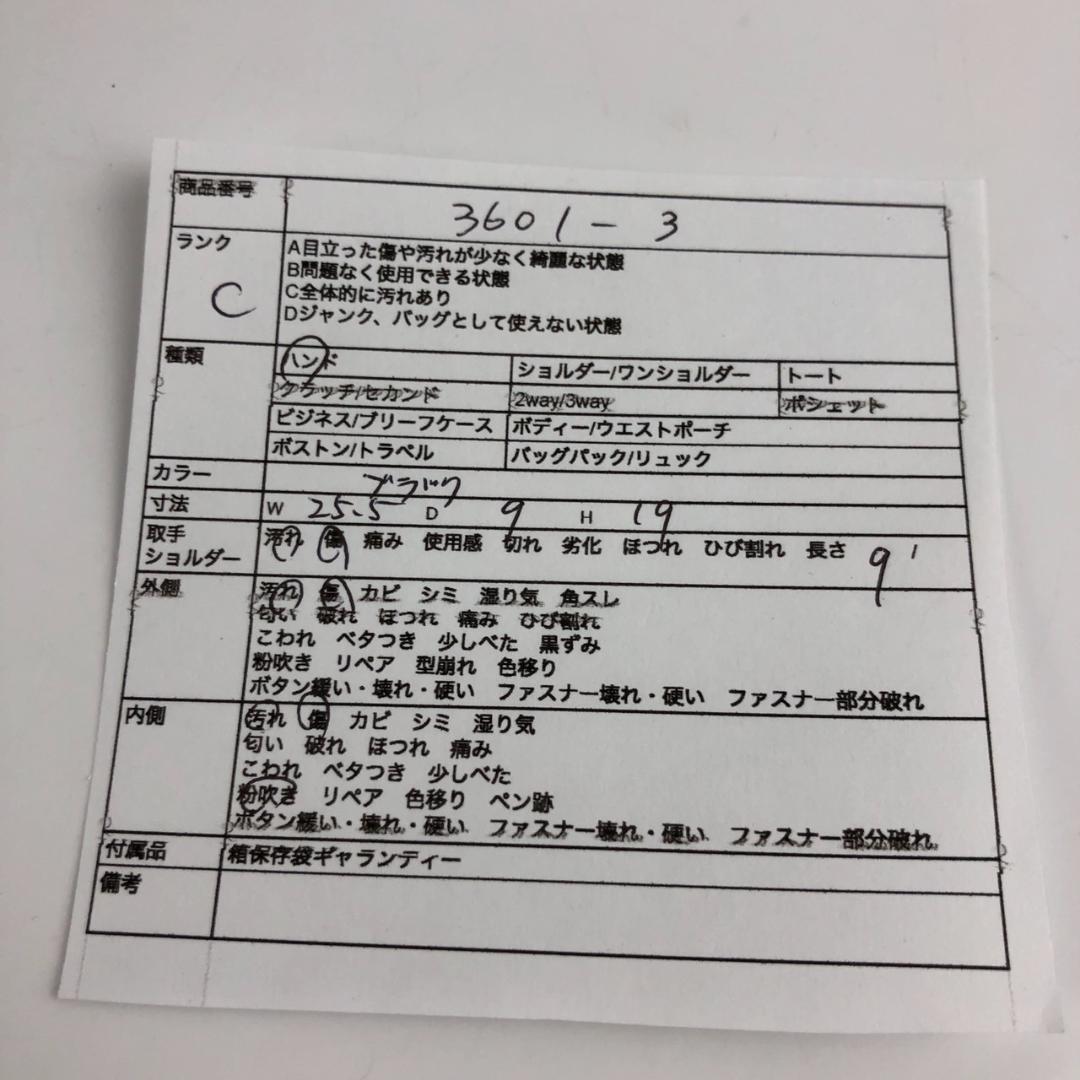 商品番号 3601-3
ランク C
A目立った傷や汚れが少なく綺麗な状態
B問題なく使用できる状態
C全体的に汚れあり
Dジャンク、バッグとして使えない状態
種類 ハンド ショルダー/ワンショルダー トート
クラッチ/セカンド 2way/3way ポシェット
ビジネス/ブリーフケース ボディー/ウエストポーチ
ボストン/トラベル バッグパック/リュック
カラー ブラック
寸法 W 25.5 D 9 H 19
取手
ショルダー 汚れ 傷 痛み 使用感 切れ 劣化 ほつれ ひび割れ 長さ 9
外側 汚れ 傷 カビ シミ 湿り気 角スレ
匂い 破れ ほつれ 痛み ひび割れ
こわれ ベタつき 少しべた 黒ずみ
粉吹き リペア 型崩れ 色移り
ボタン緩い・壊れ・硬い ファスナー壊れ・硬い ファスナー部分破れ
内側 汚れ 傷 カビ シミ 湿り気
匂い 破れ ほつれ 痛み
こわれ ベタつき 少しべた
粉吹き リペア 色移り ペン跡
ボタン緩い・壊れ・硬い ファスナー壊れ・硬い ファスナー部分破れ
付属品 箱保存袋ギャランティー
備考